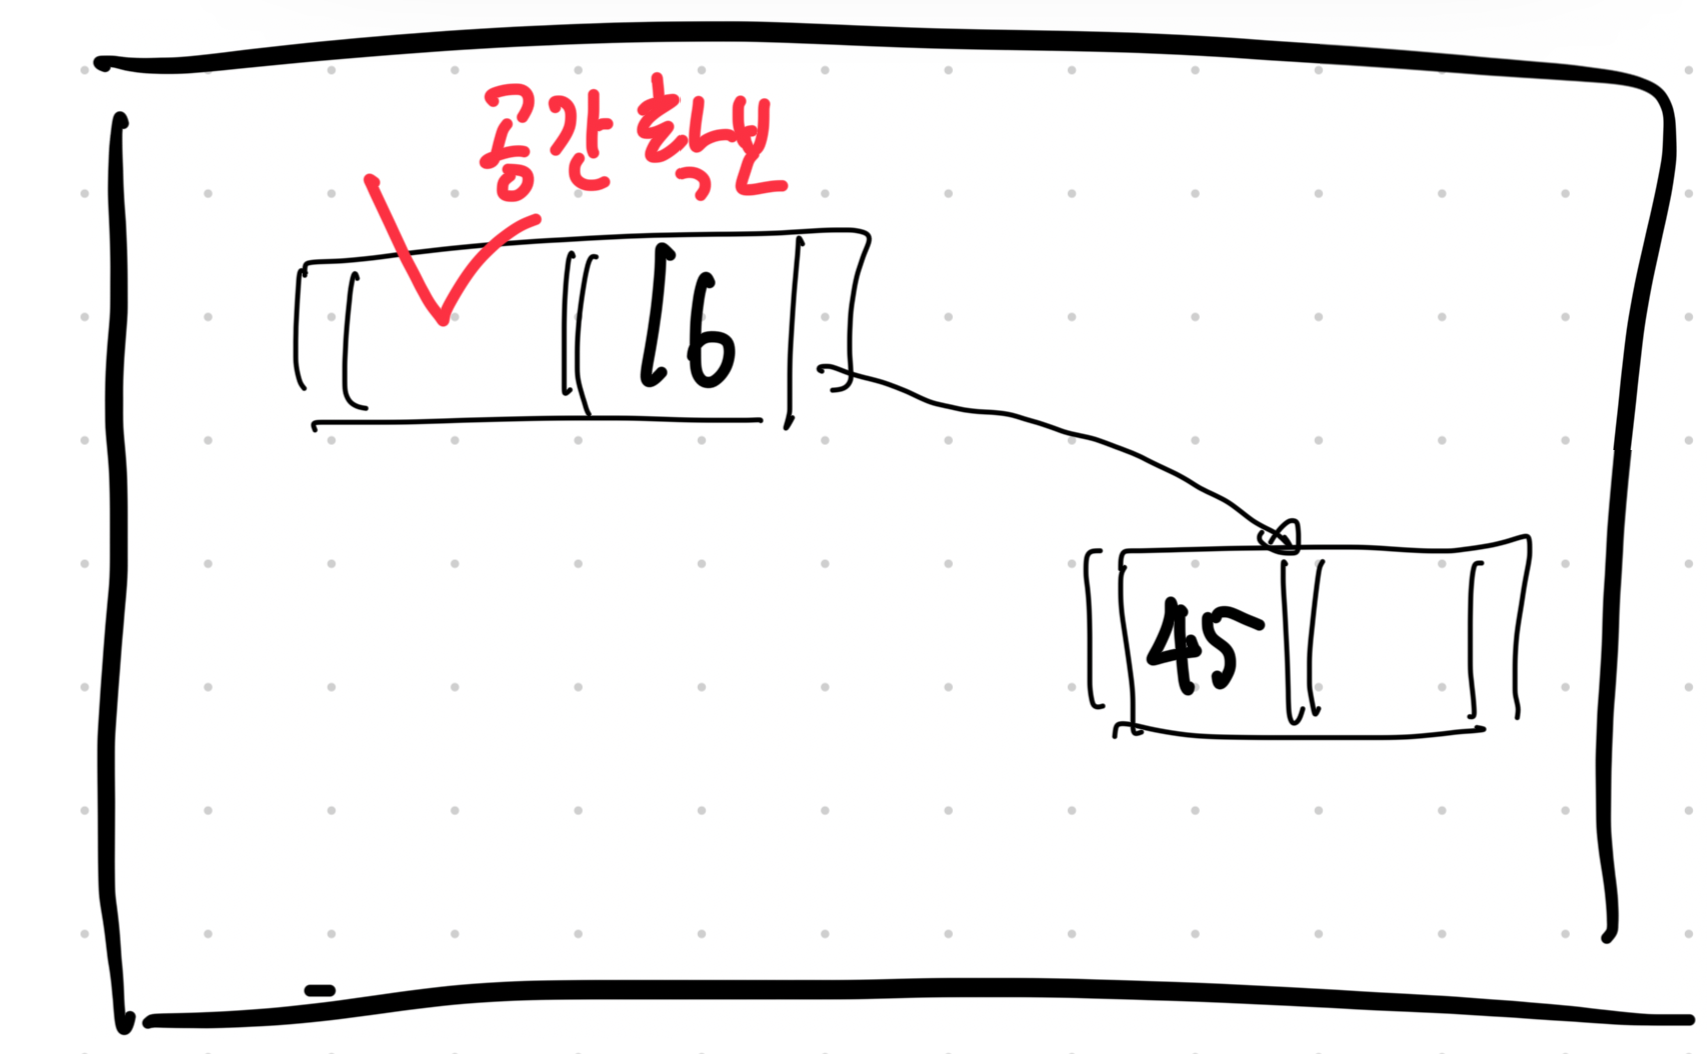 공간 확보
16
45